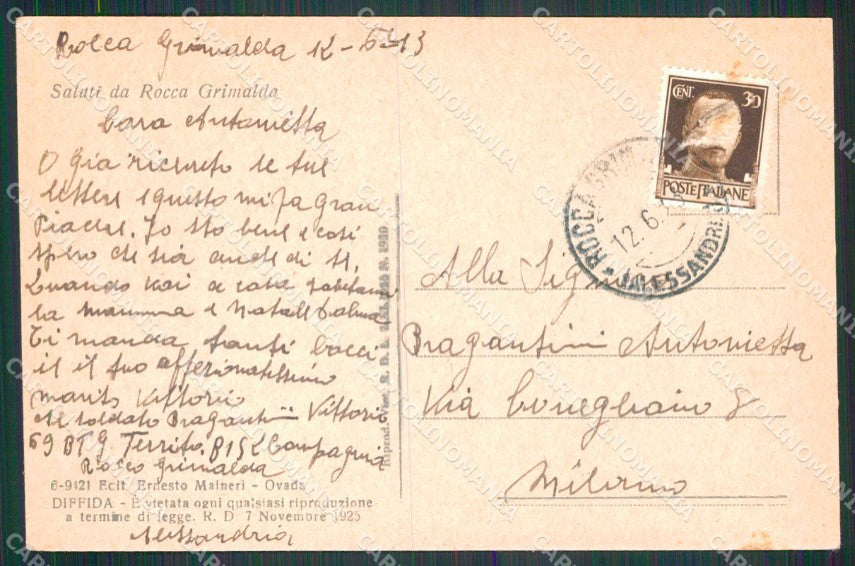 Rocca Grimalda 12-6-43
Saluti da Rocca Grimalda
Cara Antonietta
O Gia ricevuto le tue
lettere e questo mi fa gran
Piacere. Io sto bene e così
spero che sia anche di te,
Quando vai a casa
la mamma e
Ti manda tanti bacci
il il tuo affezionatissimo
marito Vittorio
soldato Bragantini Vittorio
69 BTG Territo. 815 Compagnia
Rocca Grimalda
6-9421 Edit. Ernesto Maineri - Ovada
DIFFIDA - È vietata ogni qualsiasi riproduzione
a termine di legge. R. D 7 Novembre 1925
Alessandria
Riprod. Viet.
CENT. 30
POSTE ITALIANE
ROCCA GRIM
12.6.
(ALESSANDRIA)
Alla
Bragantini Antonietta
Via Conegliano 8
Milano
CARTOLINOMANIA